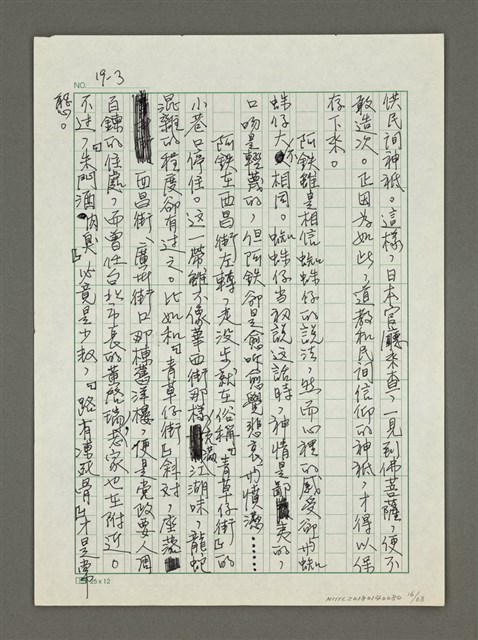 NO. 19-3
供民間神祇。這樣，日本官廳來查，一見到佛菩薩，便不
敢造次。正因為如此，道教和民間信仰的神祇，才得以保
存下來。
阿鉄雖是相信蜘蛛仔的說法，然而心裡的感受卻與蜘
蛛仔大不相同。蜘蛛仔當初說這話時，神情是鄙夷的，
口吻是輕蔑的，但阿鉄卻是愈听愈覺悲哀與憤懣……
阿鉄在西昌街左轉，走沒步就在俗稱「青草仔街」的
小巷口停住。這一帶雖不像華西街那樣充滿江湖味，龍蛇
混雜的程度卻有過之。比如和「青草仔街」斜對，座落
西昌街、廣州街口那棟舊洋樓，便是党政要人周
百鍊的住處，而曾任台北市長的黃啓瑞，老家也在附近。
不过，「朱門酒肉臭」必竟是少数，「路有凍死骨」才是常
態。
25 x 12
NMTL20180140080 16/28